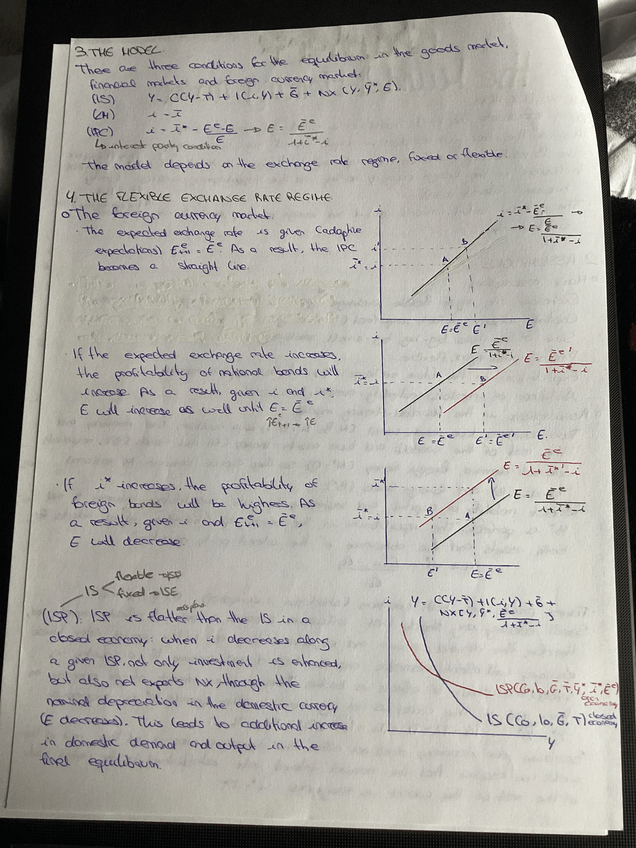 3. THE MODEL
There are three conditions for the equilibrium in the goods market,
financial markets and foreign currency market:
(IS) Y = C(Y-T̄) + I(i,Y) + Ḡ + NX(Y, Y*, E).
(LM) i = ī
(IPC) i = ī* - (Ēᵉ-E)/E → E = Ēᵉ/(1+ī*-i)
↳ interest parity condition
The model depends on the exchange rate regime, fixed or flexible.
4. THE FLEXIBLE EXCHANGE RATE REGIME
o The foreign currency market.
· The expected exchange rate is given (adaptive
expectations) Eᵉt+1 = Ēᵉ. As a result, the IPC
becomes a straight line.
i
i = ī* - (Ēᵉ-E)/E →
→ E = Ēᵉ/(1+ī*-i)
i'
ī* = i
A
B
E=Ēᵉ E' E
If the expected exchange rate increases,
the profitability of national bonds will
increase. As a result, given i and i*,
E will increase as well until E = Ēᵉ
↑Eᵉt+1 → ↑E
i
E = Ēᵉ/(1+ī*-i)
E = Ēᵉ'/(1+ī*-i)
ī* = i
A
B
E=Ēᵉ E'=Ēᵉ' E.
· If i* increases, the profitability of
foreign bonds will be highest. As
a result, given i and Eᵉt+1 = Ēᵉ,
E will decrease.
i
E = Ēᵉ/(1+ī*'-i)
E = Ēᵉ/(1+ī*-i)
ī*'
ī* = i
B
A
E' E=Ēᵉ
IS
flexible → ISP
fixed → ISE
(ISP): ISP is flatter than the IS in a
closed economy: when i decreases along
a given ISP, not only investment is enhanced,
but also net exports NX, through the
nominal depreciation in the domestic currency
(E decreases). This leads to additional increase
in domestic demand and output in the
final equilibrium.
i
Y = C(Y-T̄) + I(i,Y) + Ḡ +
NX[Y, Y*, Ēᵉ/(1+ī*-i)]
ISP(C₀, I₀, Ḡ, T̄, Y*, ī*, Ēᵉ)
open economy
IS (C₀, I₀, Ḡ, T) closed economy
Y